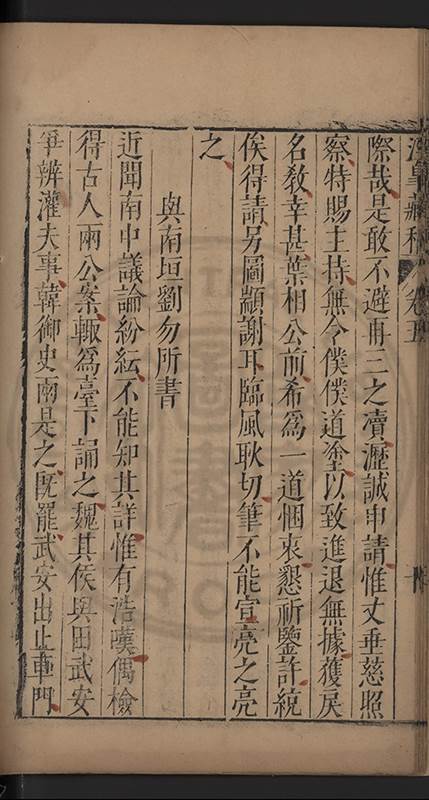 卷五
際哉是敢不避再三之瀆瀝誠申請惟丈垂慈照
察特賜主持無令僕僕道塗以致進退無據獲戾
名教幸甚葉相公前希為一道悃衷懇祈鑒許統
俟得請另圖顓謝耳臨風耿切筆不能宣亮之亮
之
與南垣劉勿所書
近聞南中議論紛紜不能知其詳惟有浩嘆偶檢
得古人兩公案輙為臺下誦之魏其侯與田武安
爭辨灌夫事韓御史兩是之既罷武安出止車門